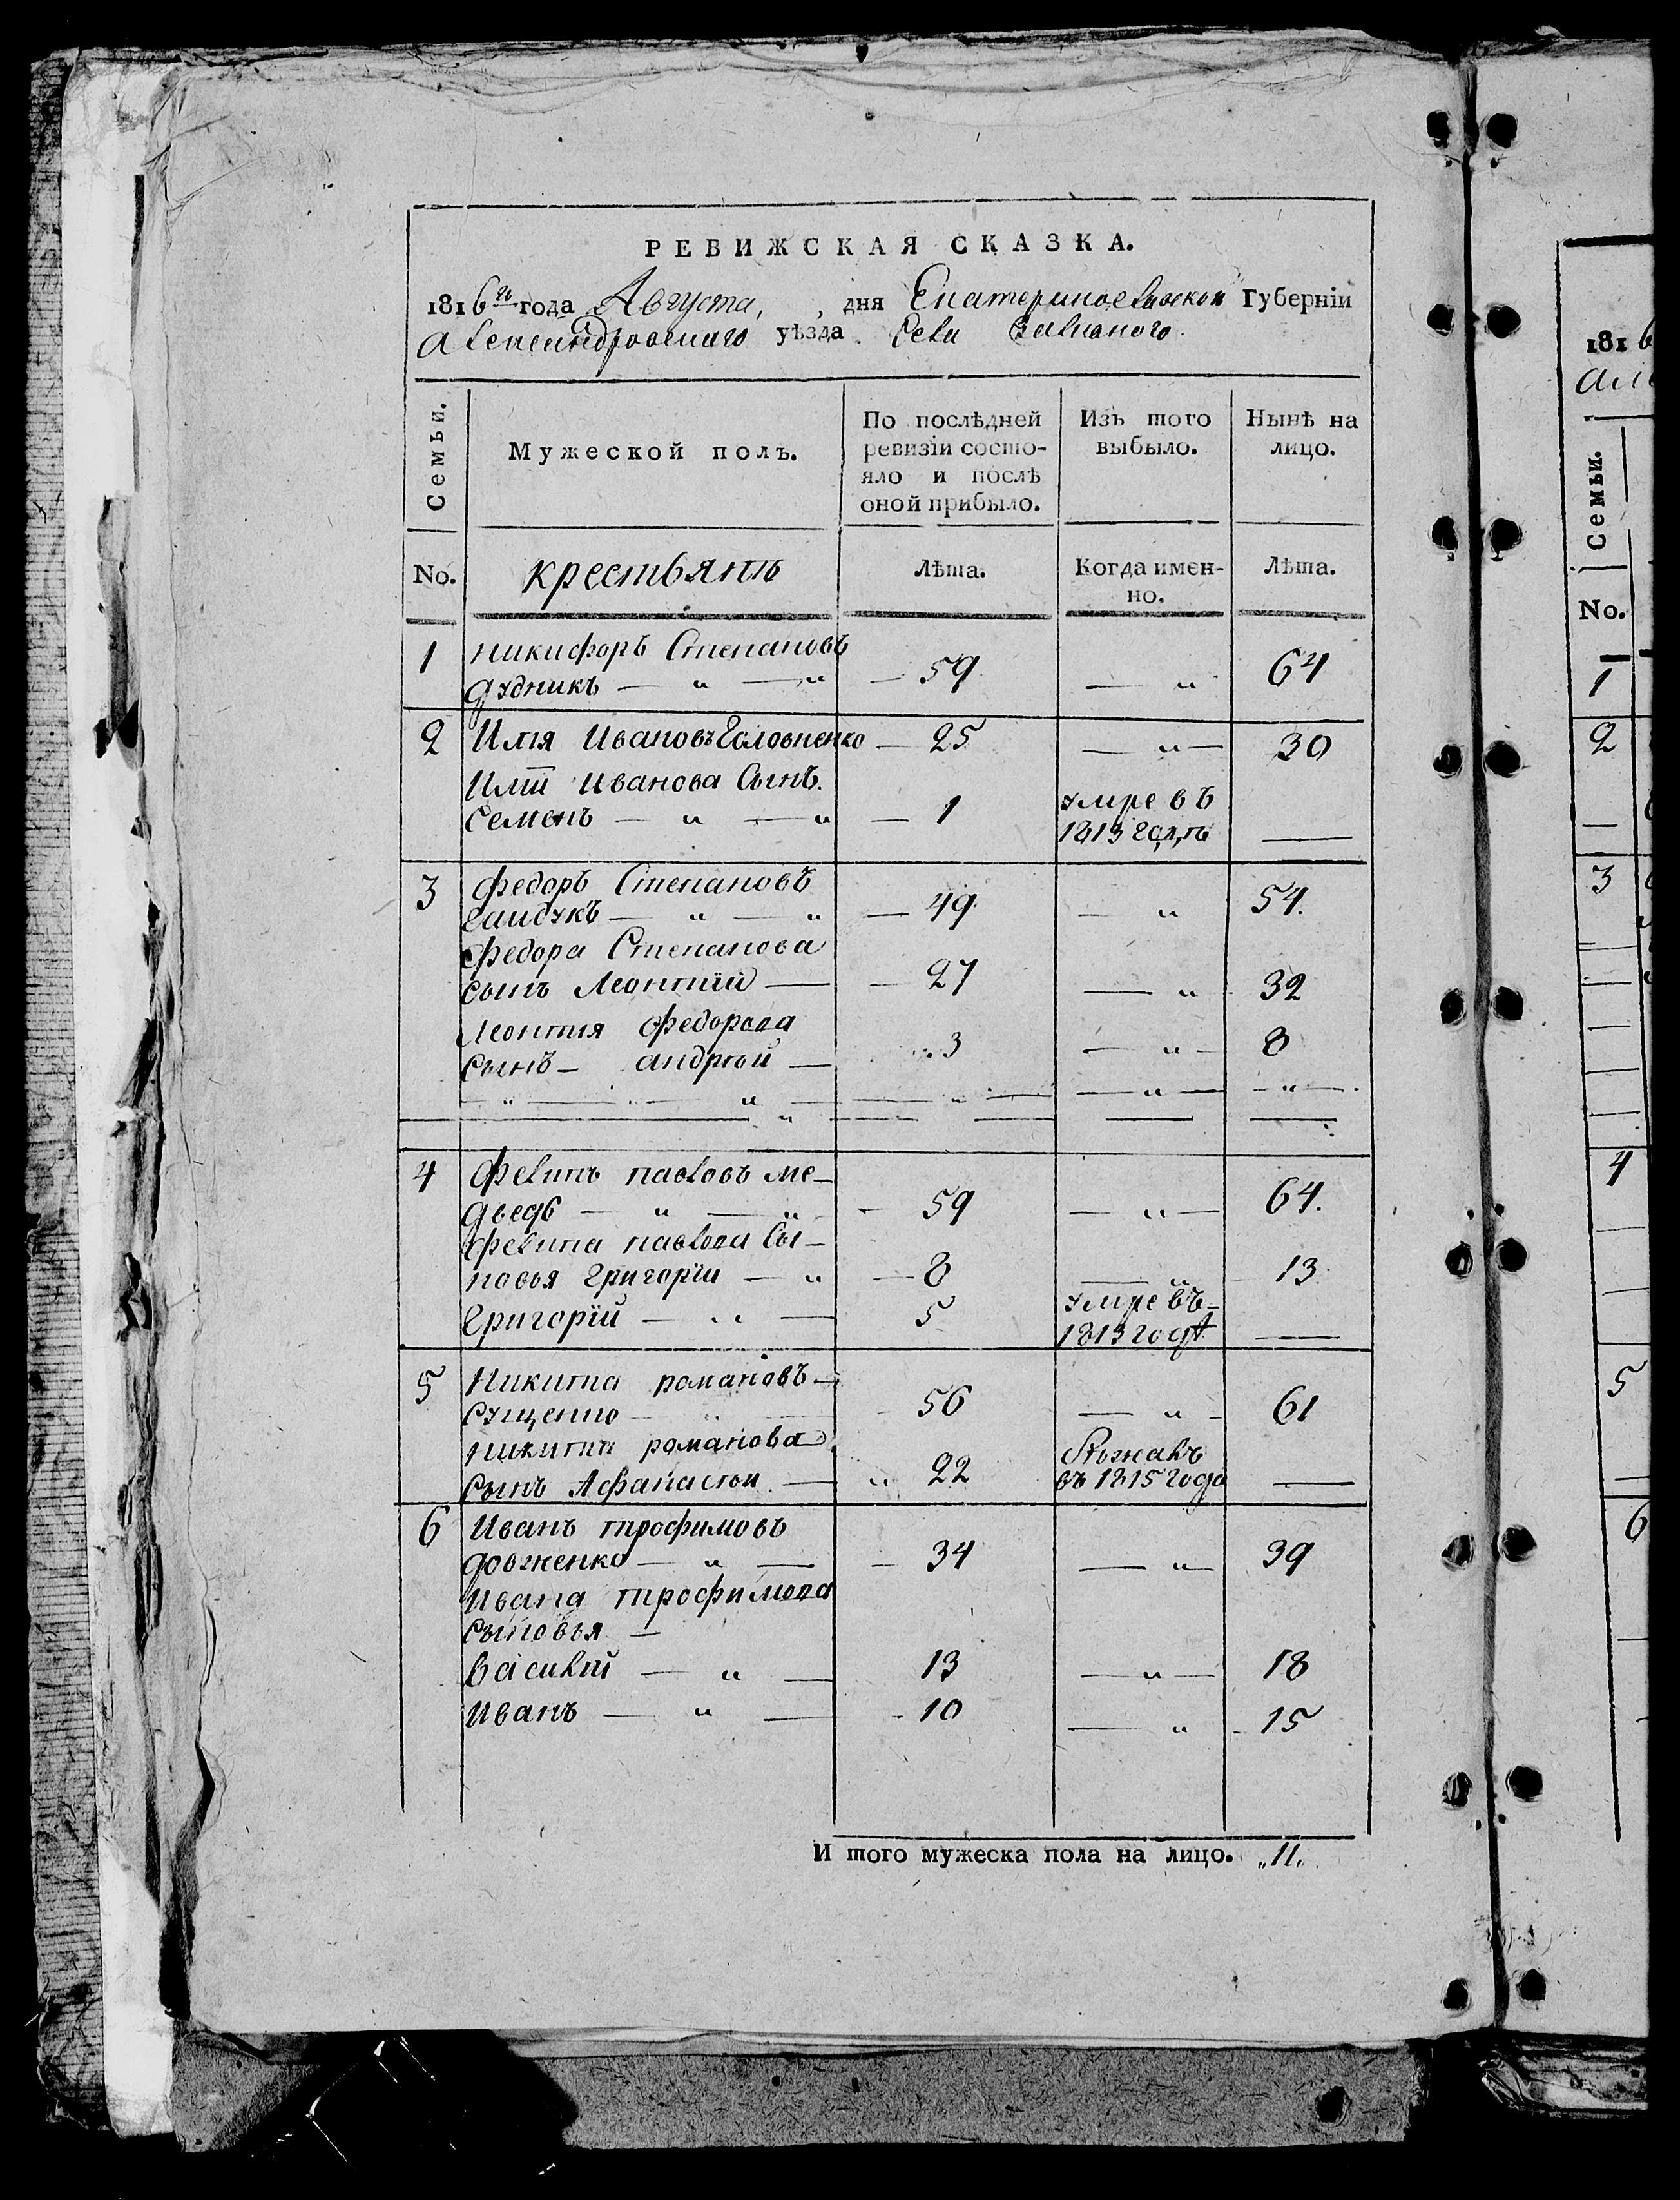 РЕВИЖСКАЯ СКАЗКА.
1816го года Августа, дня Екатеринославской Губерніи
Александровскаго уѣзда Села
Семьи. Мужеской полъ. По послѣдней ревизіи состо-яло и послѣ оной прибыло. Изъ того выбыло. Нынѣ на лицо.
No. крестьянѣ Лѣта. Когда имен-но. Лѣта.
1 никифоръ Степановъ
дудникъ — „ — „ — 59 — „ 64
2 Илія ИвановъГоловненко — 25 — „ — 30
Иліи Иванова Сынъ.
Семенъ — „ — „ — 1 умре въ
1813 годѣ —
3 Федоръ Степановъ
гайдукъ — „ — „ — 49 — „ 54.
Федора Степанова
сынъ Леонтій — — 27 — „ 32
Леонтія Федорова
Сынъ — андрѣй — 3 — „ — 8
4 Филипъ павловъ ме-
дведь — „ — „ — 59 — „ — 64.
Филипа павлова Сы-
новья григоріи — „ — 8 — „ 13
григорій — „ — 5 умре въ-
1813 годѣ —
5 Никита романовъ —
сущенко — 56 — „ — 61
никиты романова
сынъ Афанасій — „ 22 Бѣжалъ
въ 1815 года —
6 Иванъ трофимовъ
довженко — „ — — 34 — „ 39
Ивана трофимова
сыновья —
василій — „ — 13 — „ — 18
Иванъ — „ — - 10 — „ - 15
И того мужеска пола на лицо. „11„
1816
Але
Семьи.
No.
1
2
3
4
5
6